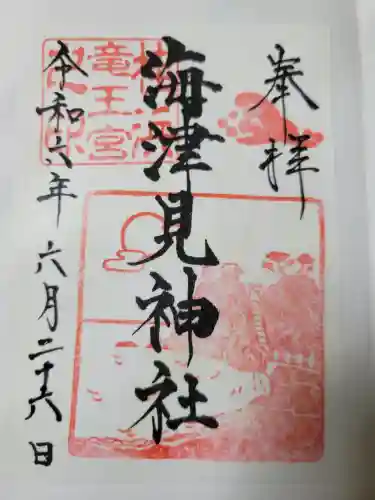 奉拝
海津見神社
令和六年六月二十六日
竜王宮